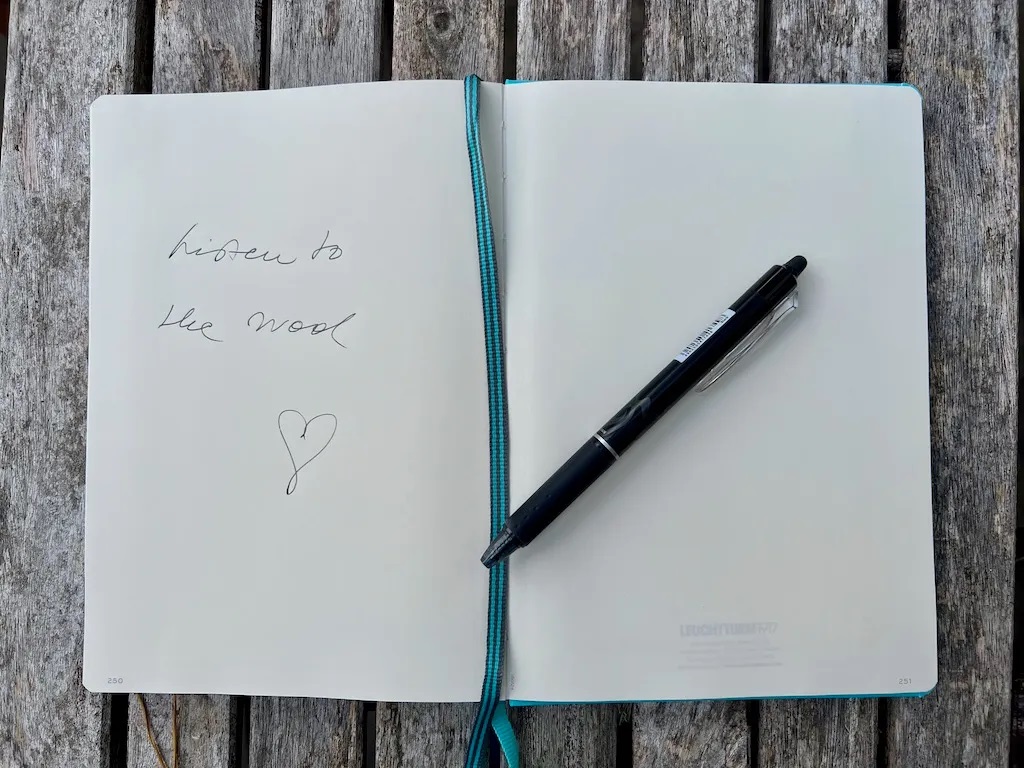 Listen to
the wool
250
251
LEUCHTTURM1917